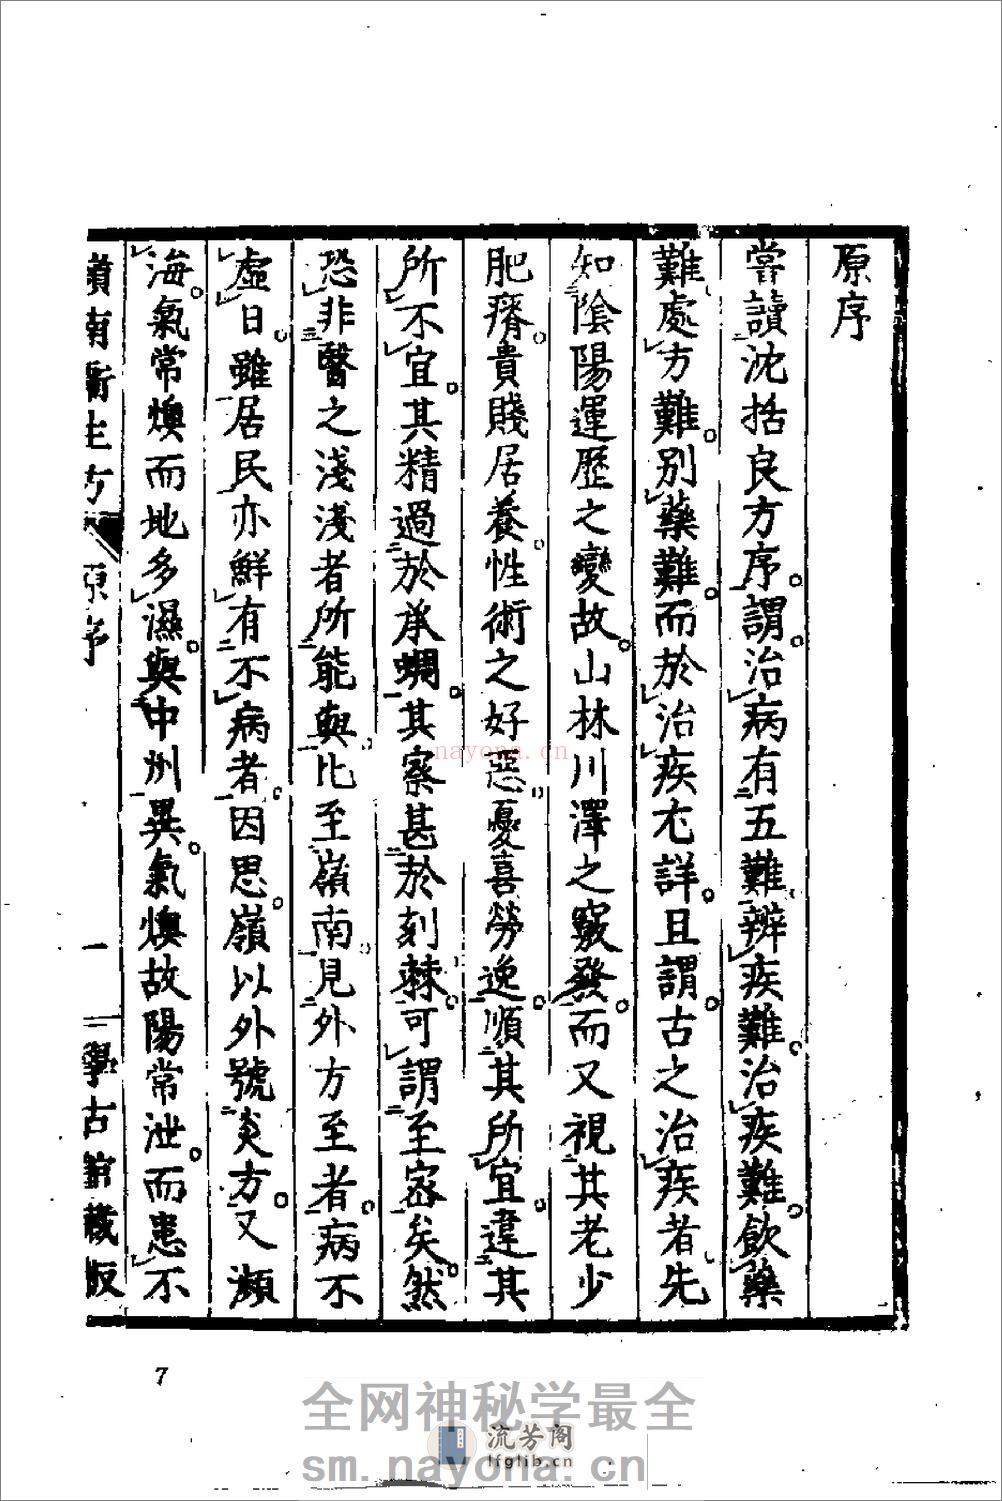 原序
嘗讀沈括良方序。謂治病有五難。辨疾難。治疾難。飲藥
難。處方難。別藥難。而於治疾尤詳。且謂。古之治疾者。先
知陰陽運歷之變故。山林川澤之竅發。而又視其老少
肥瘠。貴賤居養。性術之好惡。憂喜勞逸。順其所宜。違其
所不宜。其精過於承蜩。其察甚於刻棘。可謂至密矣。然
恐非醫之淺淺者所能與也。至嶺南。見外方至者。病不
虛日。雖居民亦鮮有不病者。因思。嶺以外號炎方。又瀕
海。氣常燠而地多濕。與中州異。氣燠故陽常泄。而患不
嶺南衛生方 原序 一 學古館藏版
7
nayona.cn
全网神秘学最全
流芳阁
lfglib.cn
sm.nayona.cn